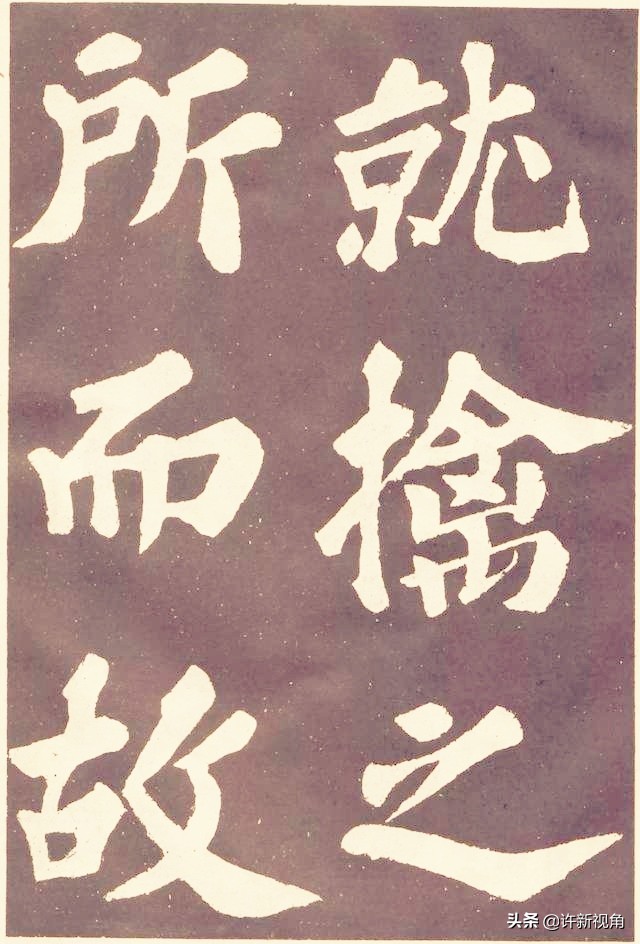 就擒之
所而故
头条 @许新视角